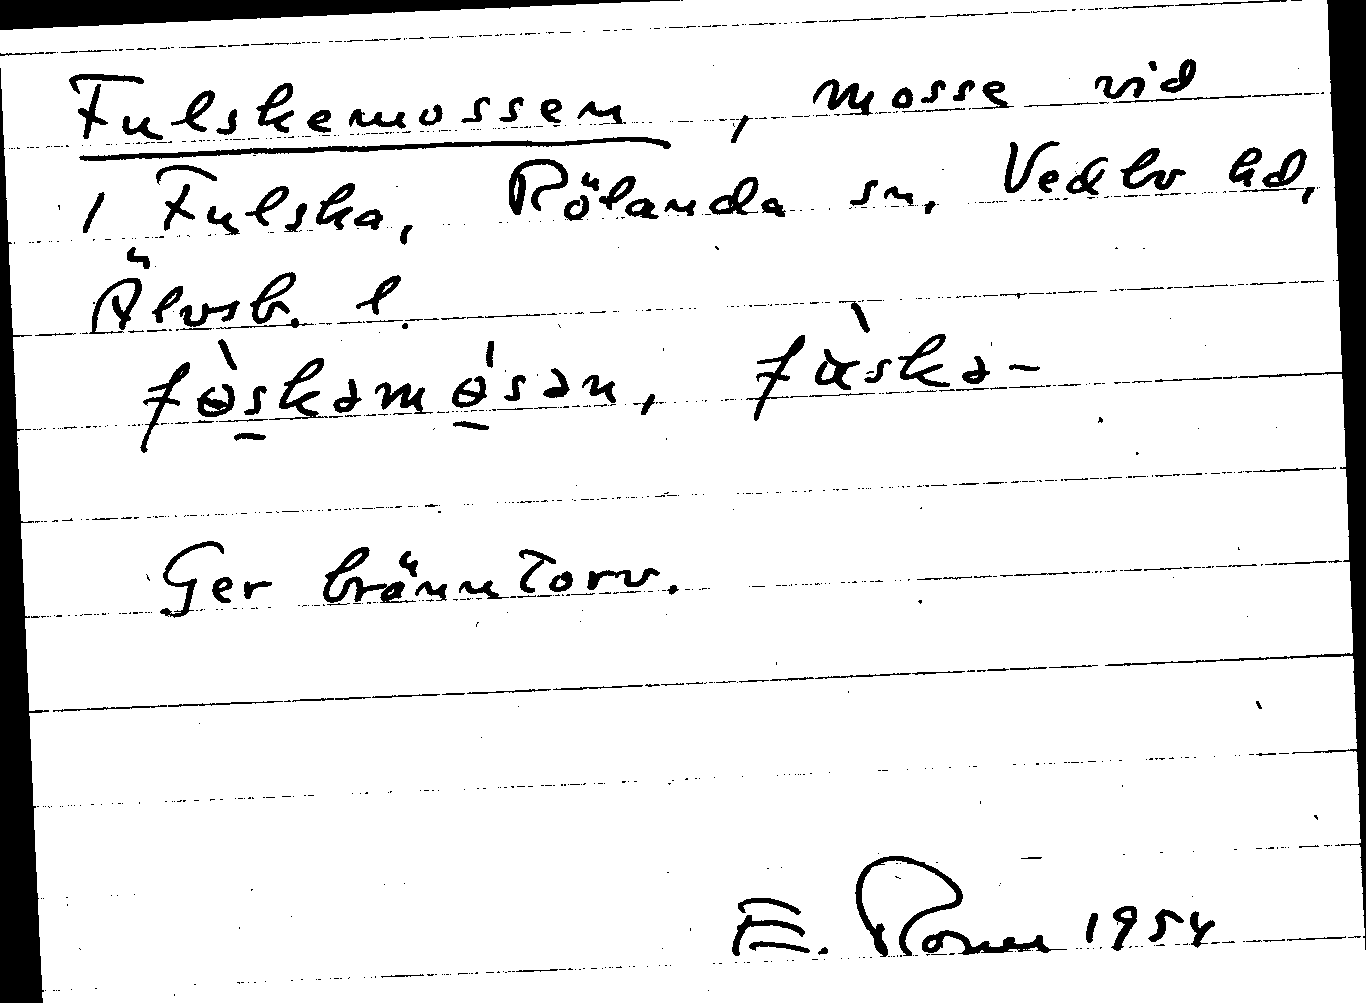 Fulskemossen, mosse vid
1 Fulska, Rölanda sn, Vedbo hd,
Älvsb. l.
fɵ̀skəmɵ́sən, fùskə-
Ger bränntorv.
E. Roman 1954